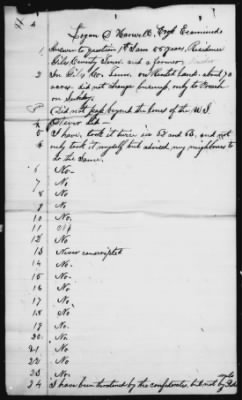 Logan C Maxwell, Esqr Examined
1 Answer to question 1st I am 56 years, Residence
Giles County Tenn. and a farmer
2 In Giles Co. Tenn, on rented Land, about 70
acres. did not change business, only to Preach
on Sunday.
3 Did not pass beyond the lines of the U.S.
4 Never did
5 I have, took it twice in 63 and 65, and not
6 only took it myself but advised my neighbours to
do the same.
6 No
7 No
8 No
9 No
10 No.
11 No
12 No
13 Never conscripted
14 No.
15 No.
16 No
17 No
18 No
19 No.
20 No.
21 No
22 No
23 No.
24 I have been threatened by the confederates, but not by